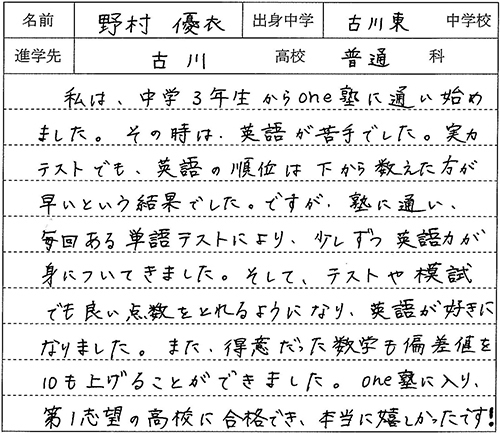 名前 野村 優衣 出身中学 古川東 中学校
進学先 古川 高校 普通 科
私は、中学3年生からone塾に通い始め
ました。その時は、英語が苦手でした。実力
テストでも、英語の順位は下から数えた方が
早いという結果でした。ですが、塾に通い、
毎回ある単語テストにより、少しずつ英語力が
身についてきました。そして、テストや模試
でも良い点数をとれるようになり、英語が好きに
なりました。また、得意だった数学も偏差値を
10も上げることができました。one塾に入り、
第1志望の高校に合格でき、本当に嬉しかったです!